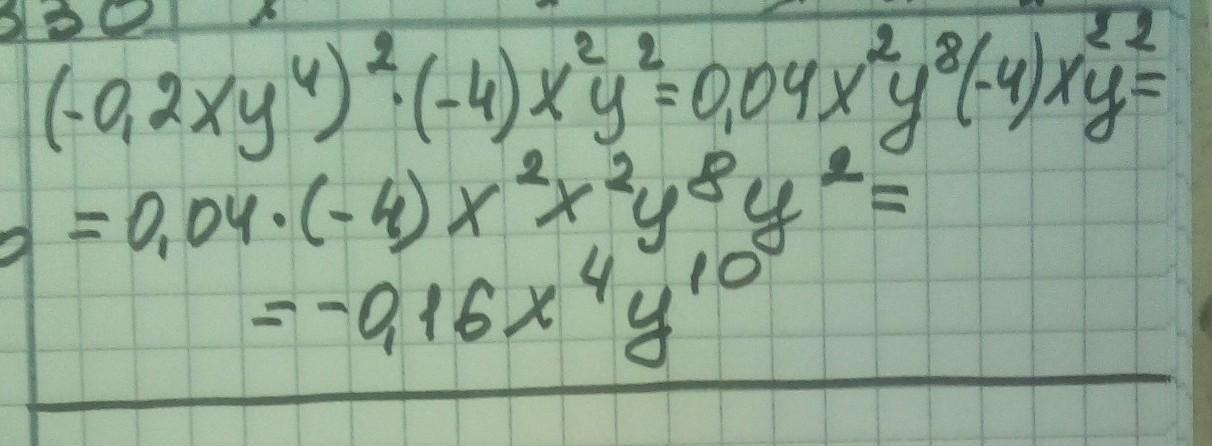 330
(-0,2xy⁴)²·(-4)x²y²=0,04x²y⁸(-4)x²y²=
=0,04·(-4)x²x²y⁸y²=
=-0,16x⁴y¹⁰